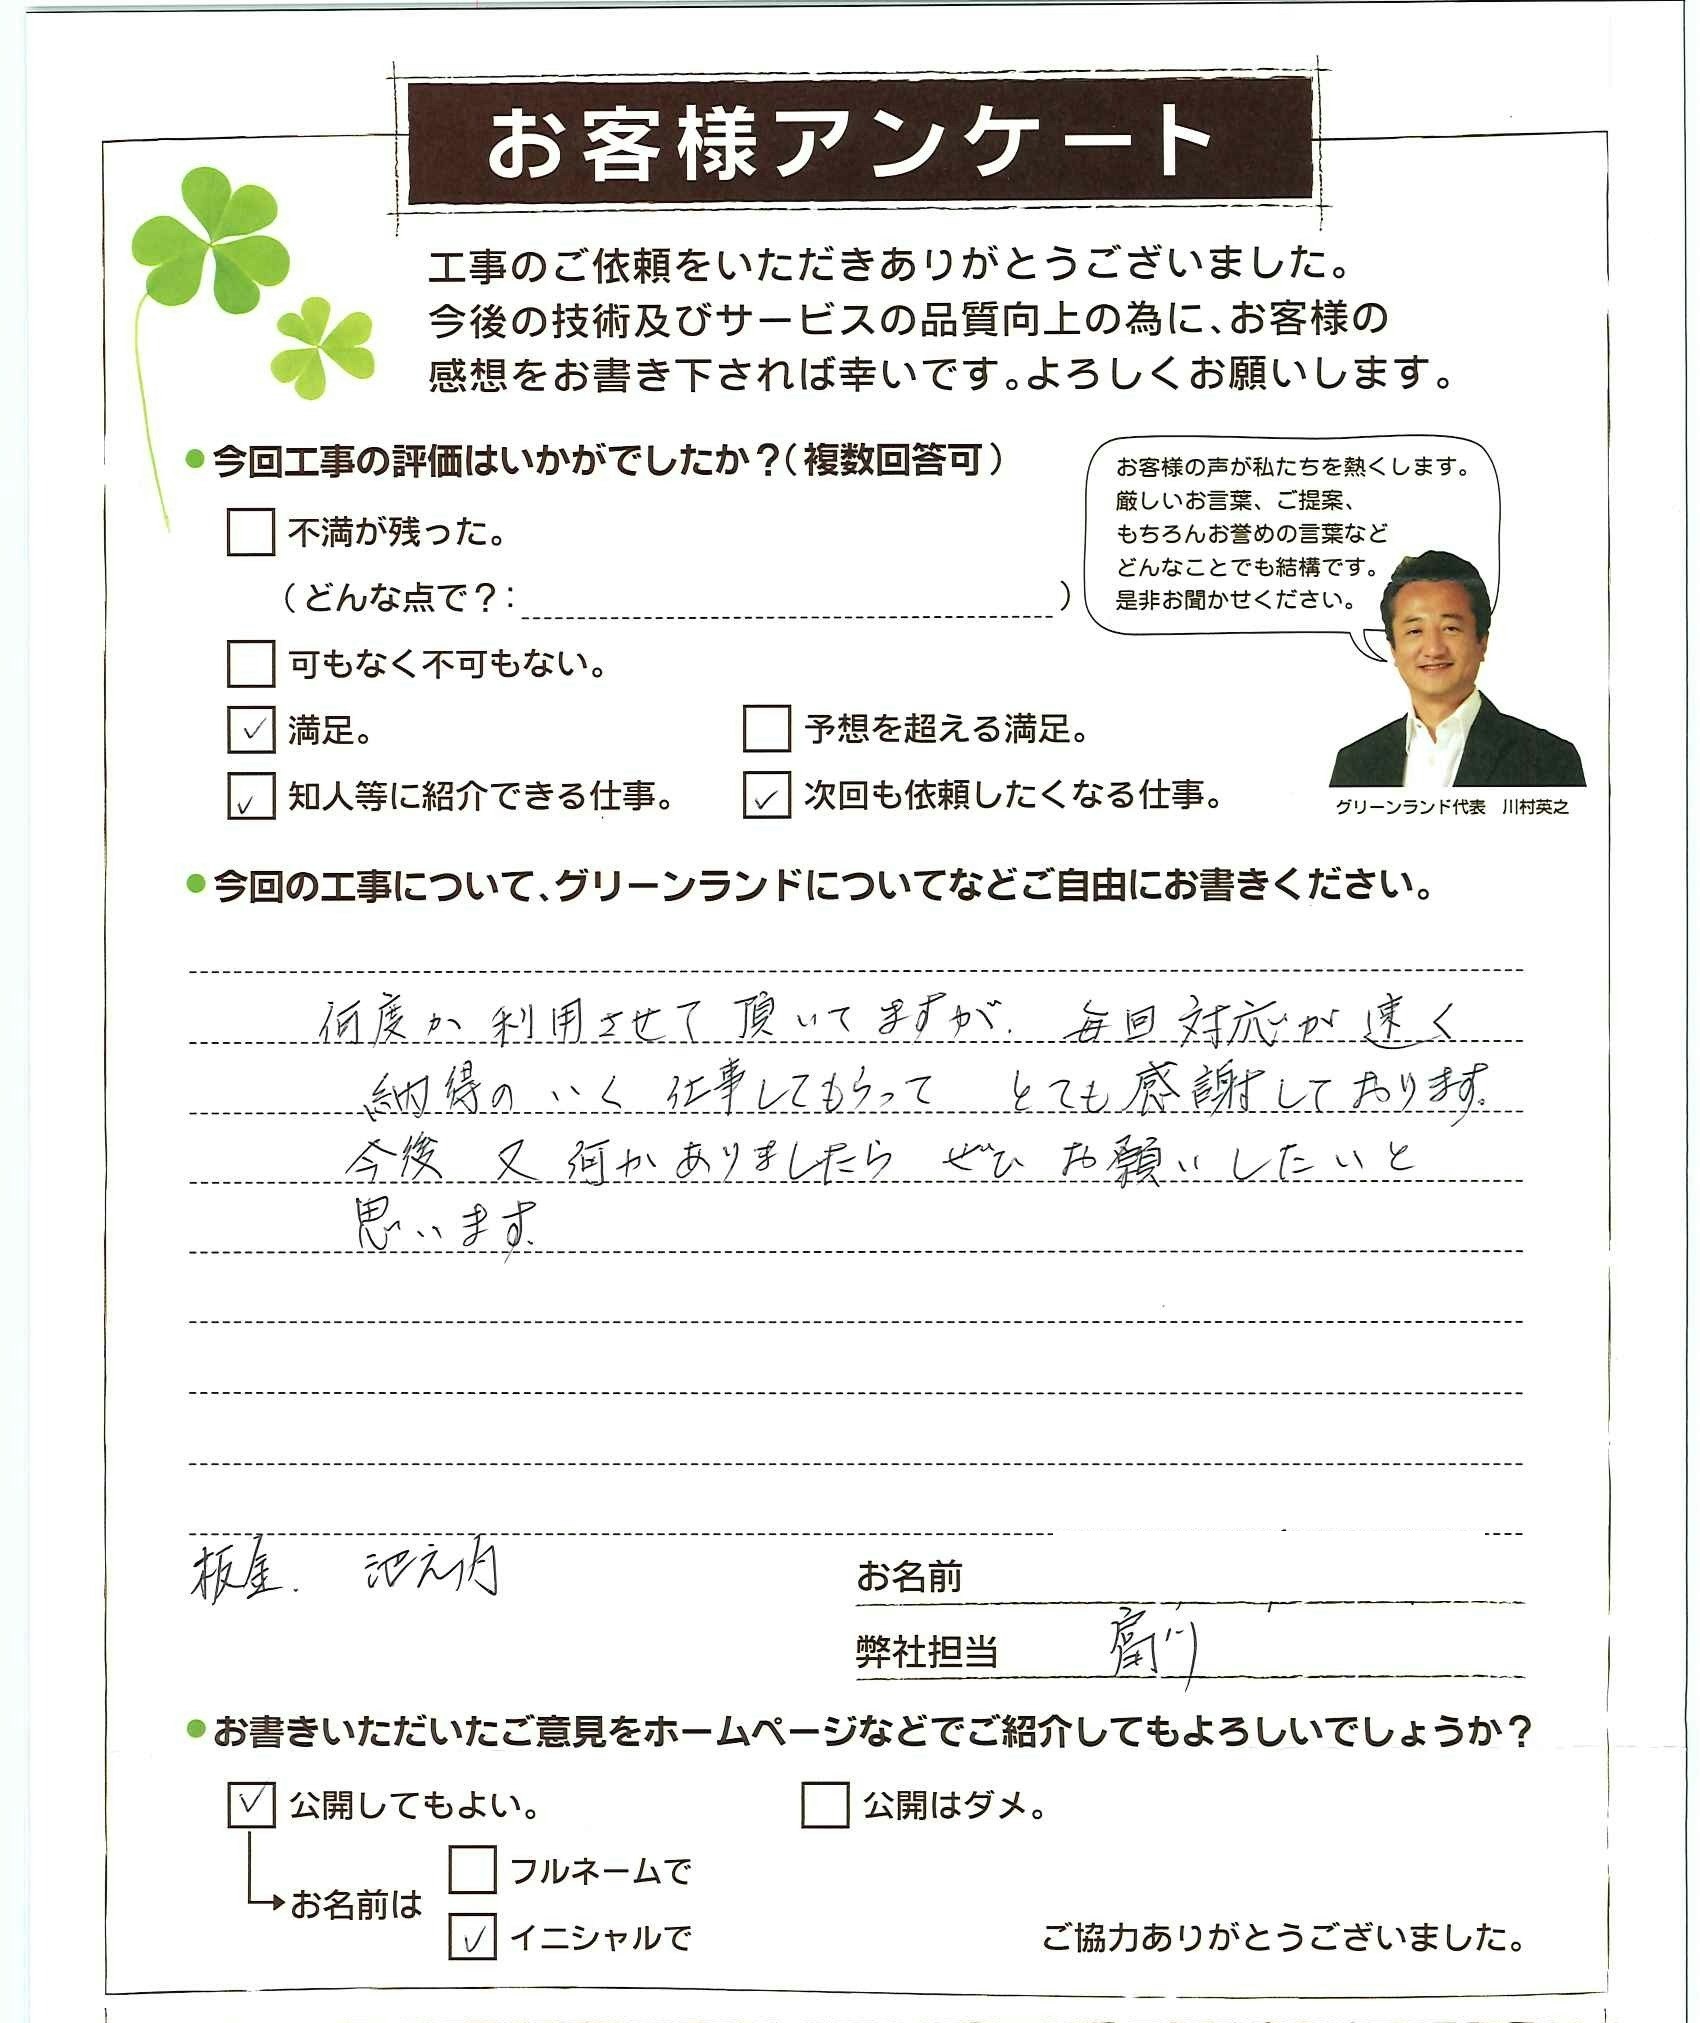 お客様アンケート
工事のご依頼をいただきありがとうございました。
今後の技術及びサービスの品質向上の為に、お客様の
感想をお書き下されば幸いです。よろしくお願いします。
●今回工事の評価はいかがでしたか？（複数回答可）
不満が残った。
（どんな点で？：）
可もなく不可もない。
✓ 満足。
予想を超える満足。
✓ 知人等に紹介できる仕事。
✓ 次回も依頼したくなる仕事。
お客様の声が私たちを熱くします。
厳しいお言葉、ご提案、
もちろんお誉めの言葉など
どんなことでも結構です。
是非お聞かせください。
グリーンランド代表　川村英之
●今回の工事について、グリーンランドについてなどご自由にお書きください。
何度か利用させて頂いてますが、毎回対応が速く
納得のいく仕事してもらって とても感謝しております。
今後 又 何かありましたら ぜひ お願いしたいと
思います。
板金. 池之内
お名前
弊社担当
●お書きいただいたご意見をホームページなどでご紹介してもよろしいでしょうか？
✓ 公開してもよい。
公開はダメ。
お名前は
フルネームで
✓ イニシャルで
ご協力ありがとうございました。